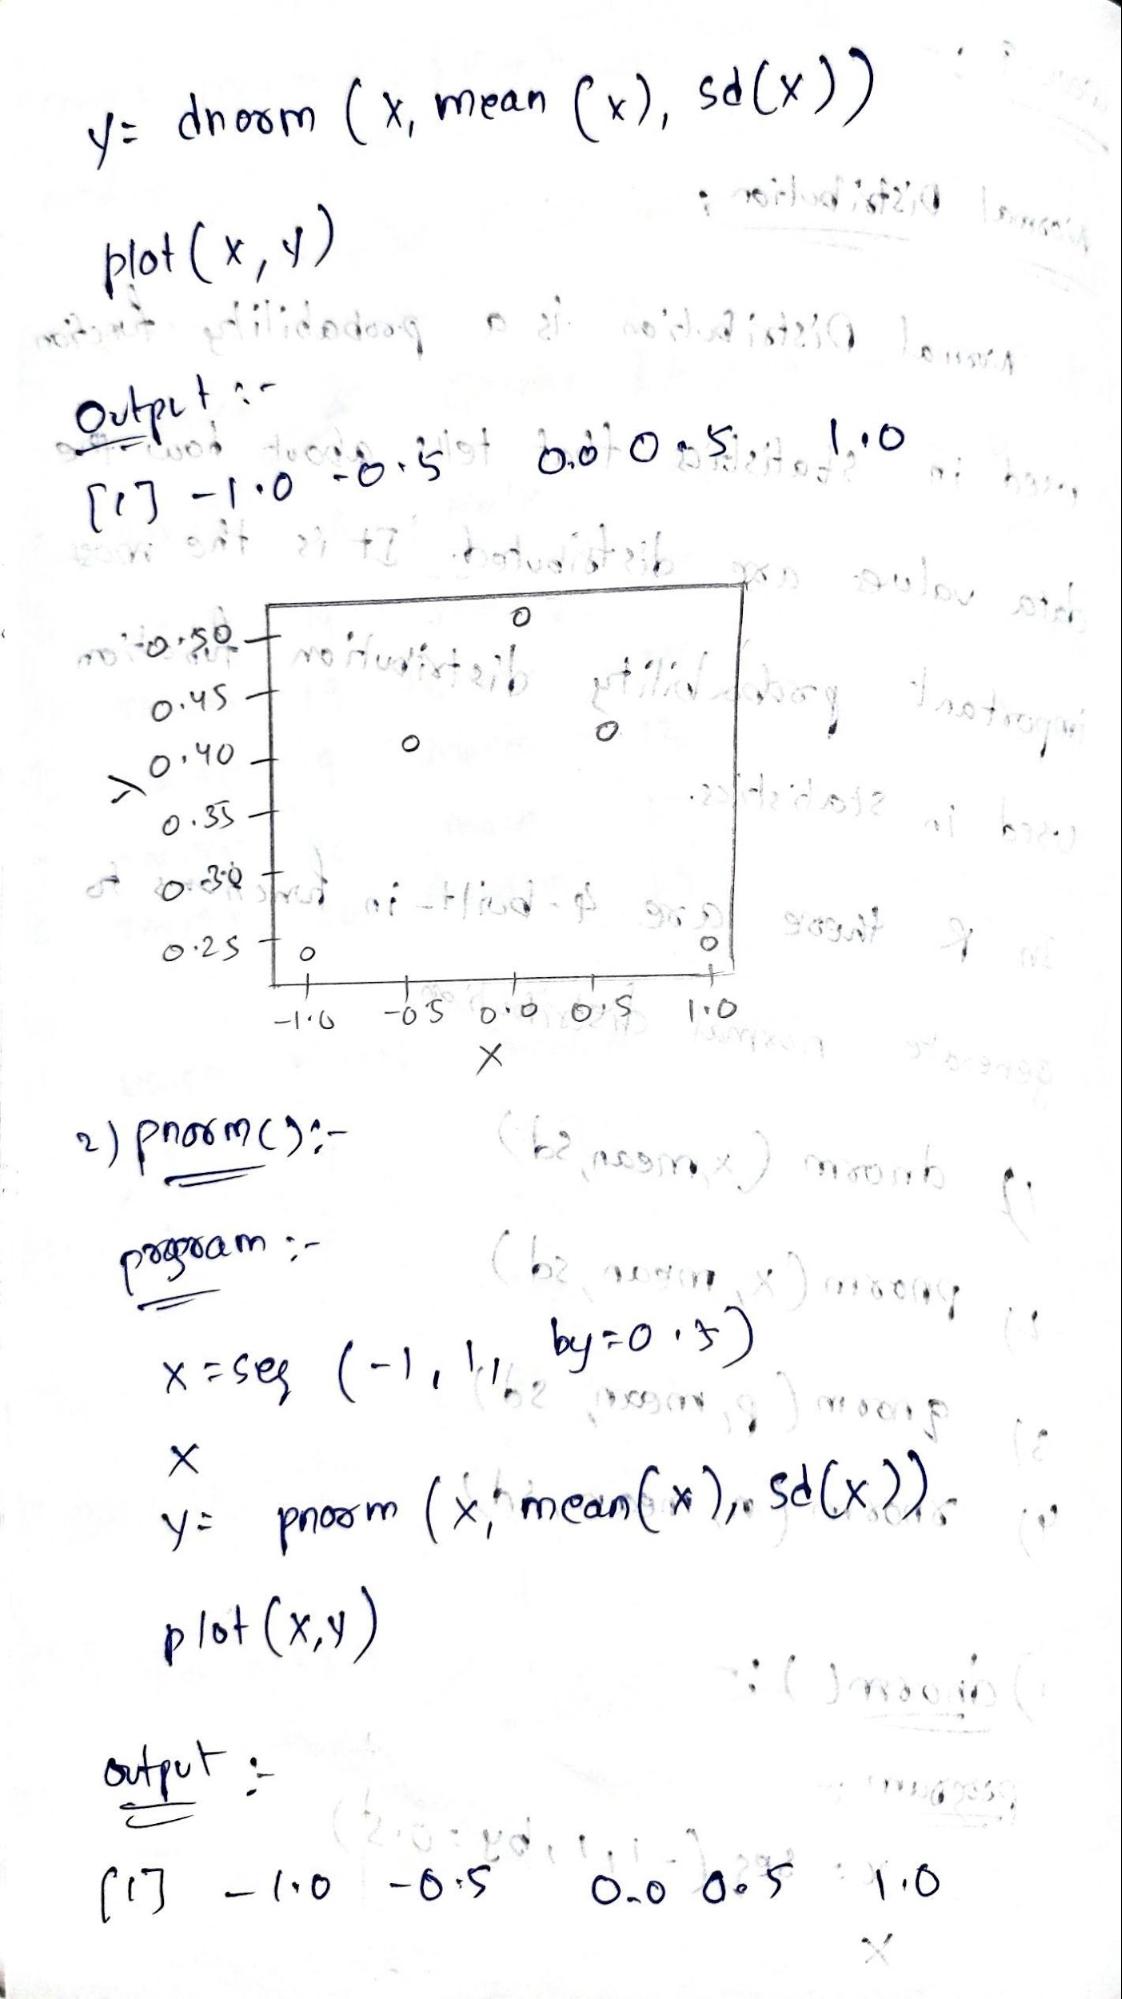 y= dnorm (x, mean (x), sd(x))
plot (x, y)
Output :-
[1] -1.0 -0.5 0.0 0.5 1.0
0.50
0.45
0.40
y
0.35
0.30
0.25
-1.0 -0.5 0.0 0.5 1.0
x
2) pnorm() :-
program :-
x = seq (-1, 1, by=0.5)
x
y= pnorm (x, mean(x), sd(x))
plot (x,y)
output :-
[1] -1.0 -0.5 0.0 0.5 1.0